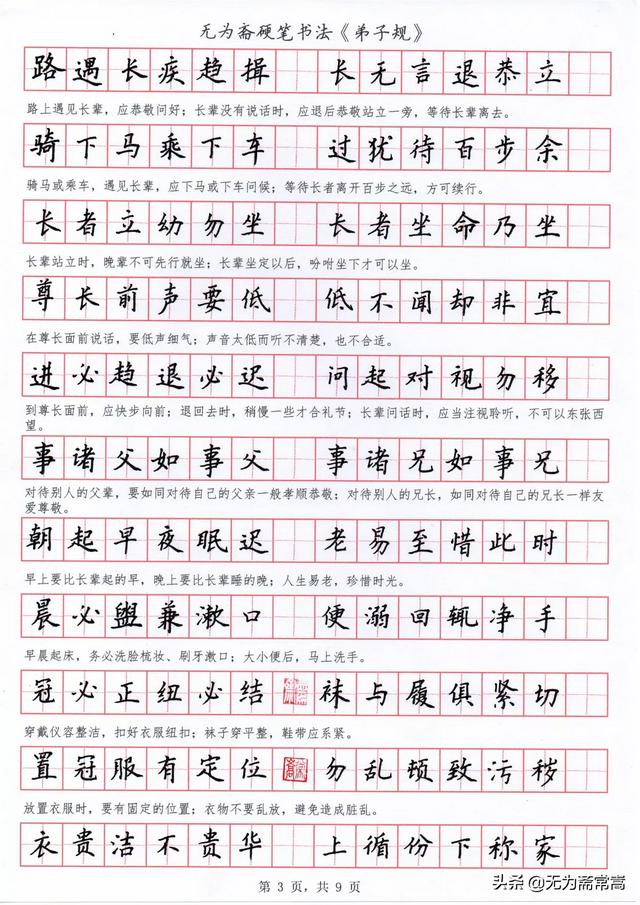 无为斋硬笔书法《弟子规》
路遇长疾趋揖 长无言退恭立
路上遇见长辈，应恭敬问好；长辈没有说话时，应退后恭敬站立一旁，等待长辈离去。
骑下马乘下车 过犹待百步余
骑马或乘车，遇见长辈，应下马或下车问候；等待长者离开百步之远，方可续行。
长者立幼勿坐 长者坐命乃坐
长辈站立时，晚辈不可先行就坐；长辈坐定以后，吩咐坐下才可以坐。
尊长前声要低 低不闻却非宜
在尊长面前说话，要低声细气；声音太低而听不清楚，也不合适。
进必趋退必迟 问起对视勿移
到尊长面前，应快步向前；退回去时，稍慢一些才合礼节；长辈问话时，应当注视聆听，不可以东张西
望。
事诸父如事父 事诸兄如事兄
对待别人的父辈，要如同对待自己的父亲一般孝顺恭敬；对待别人的兄长，如同对待自己的兄长一样友
爱尊敬。
朝起早夜眠迟 老易至惜此时
早上要比长辈起的早，晚上要比长辈睡的晚；人生易老，珍惜时光。
晨必盥兼漱口 便溺回辄净手
早晨起床，务必洗脸梳妆、刷牙漱口；大小便后，马上洗手。
冠必正纽必结 袜与履俱紧切
穿戴仪容整洁，扣好衣服纽扣；袜子穿平整，鞋带应系紧。
置冠服有定位 勿乱顿致污秽
放置衣服时，要有固定的位置；衣物不要乱放，避免造成脏乱。
衣贵洁不贵华 上循份下称家
第 3 页，共 9 页
头条 @无为斋常嵩